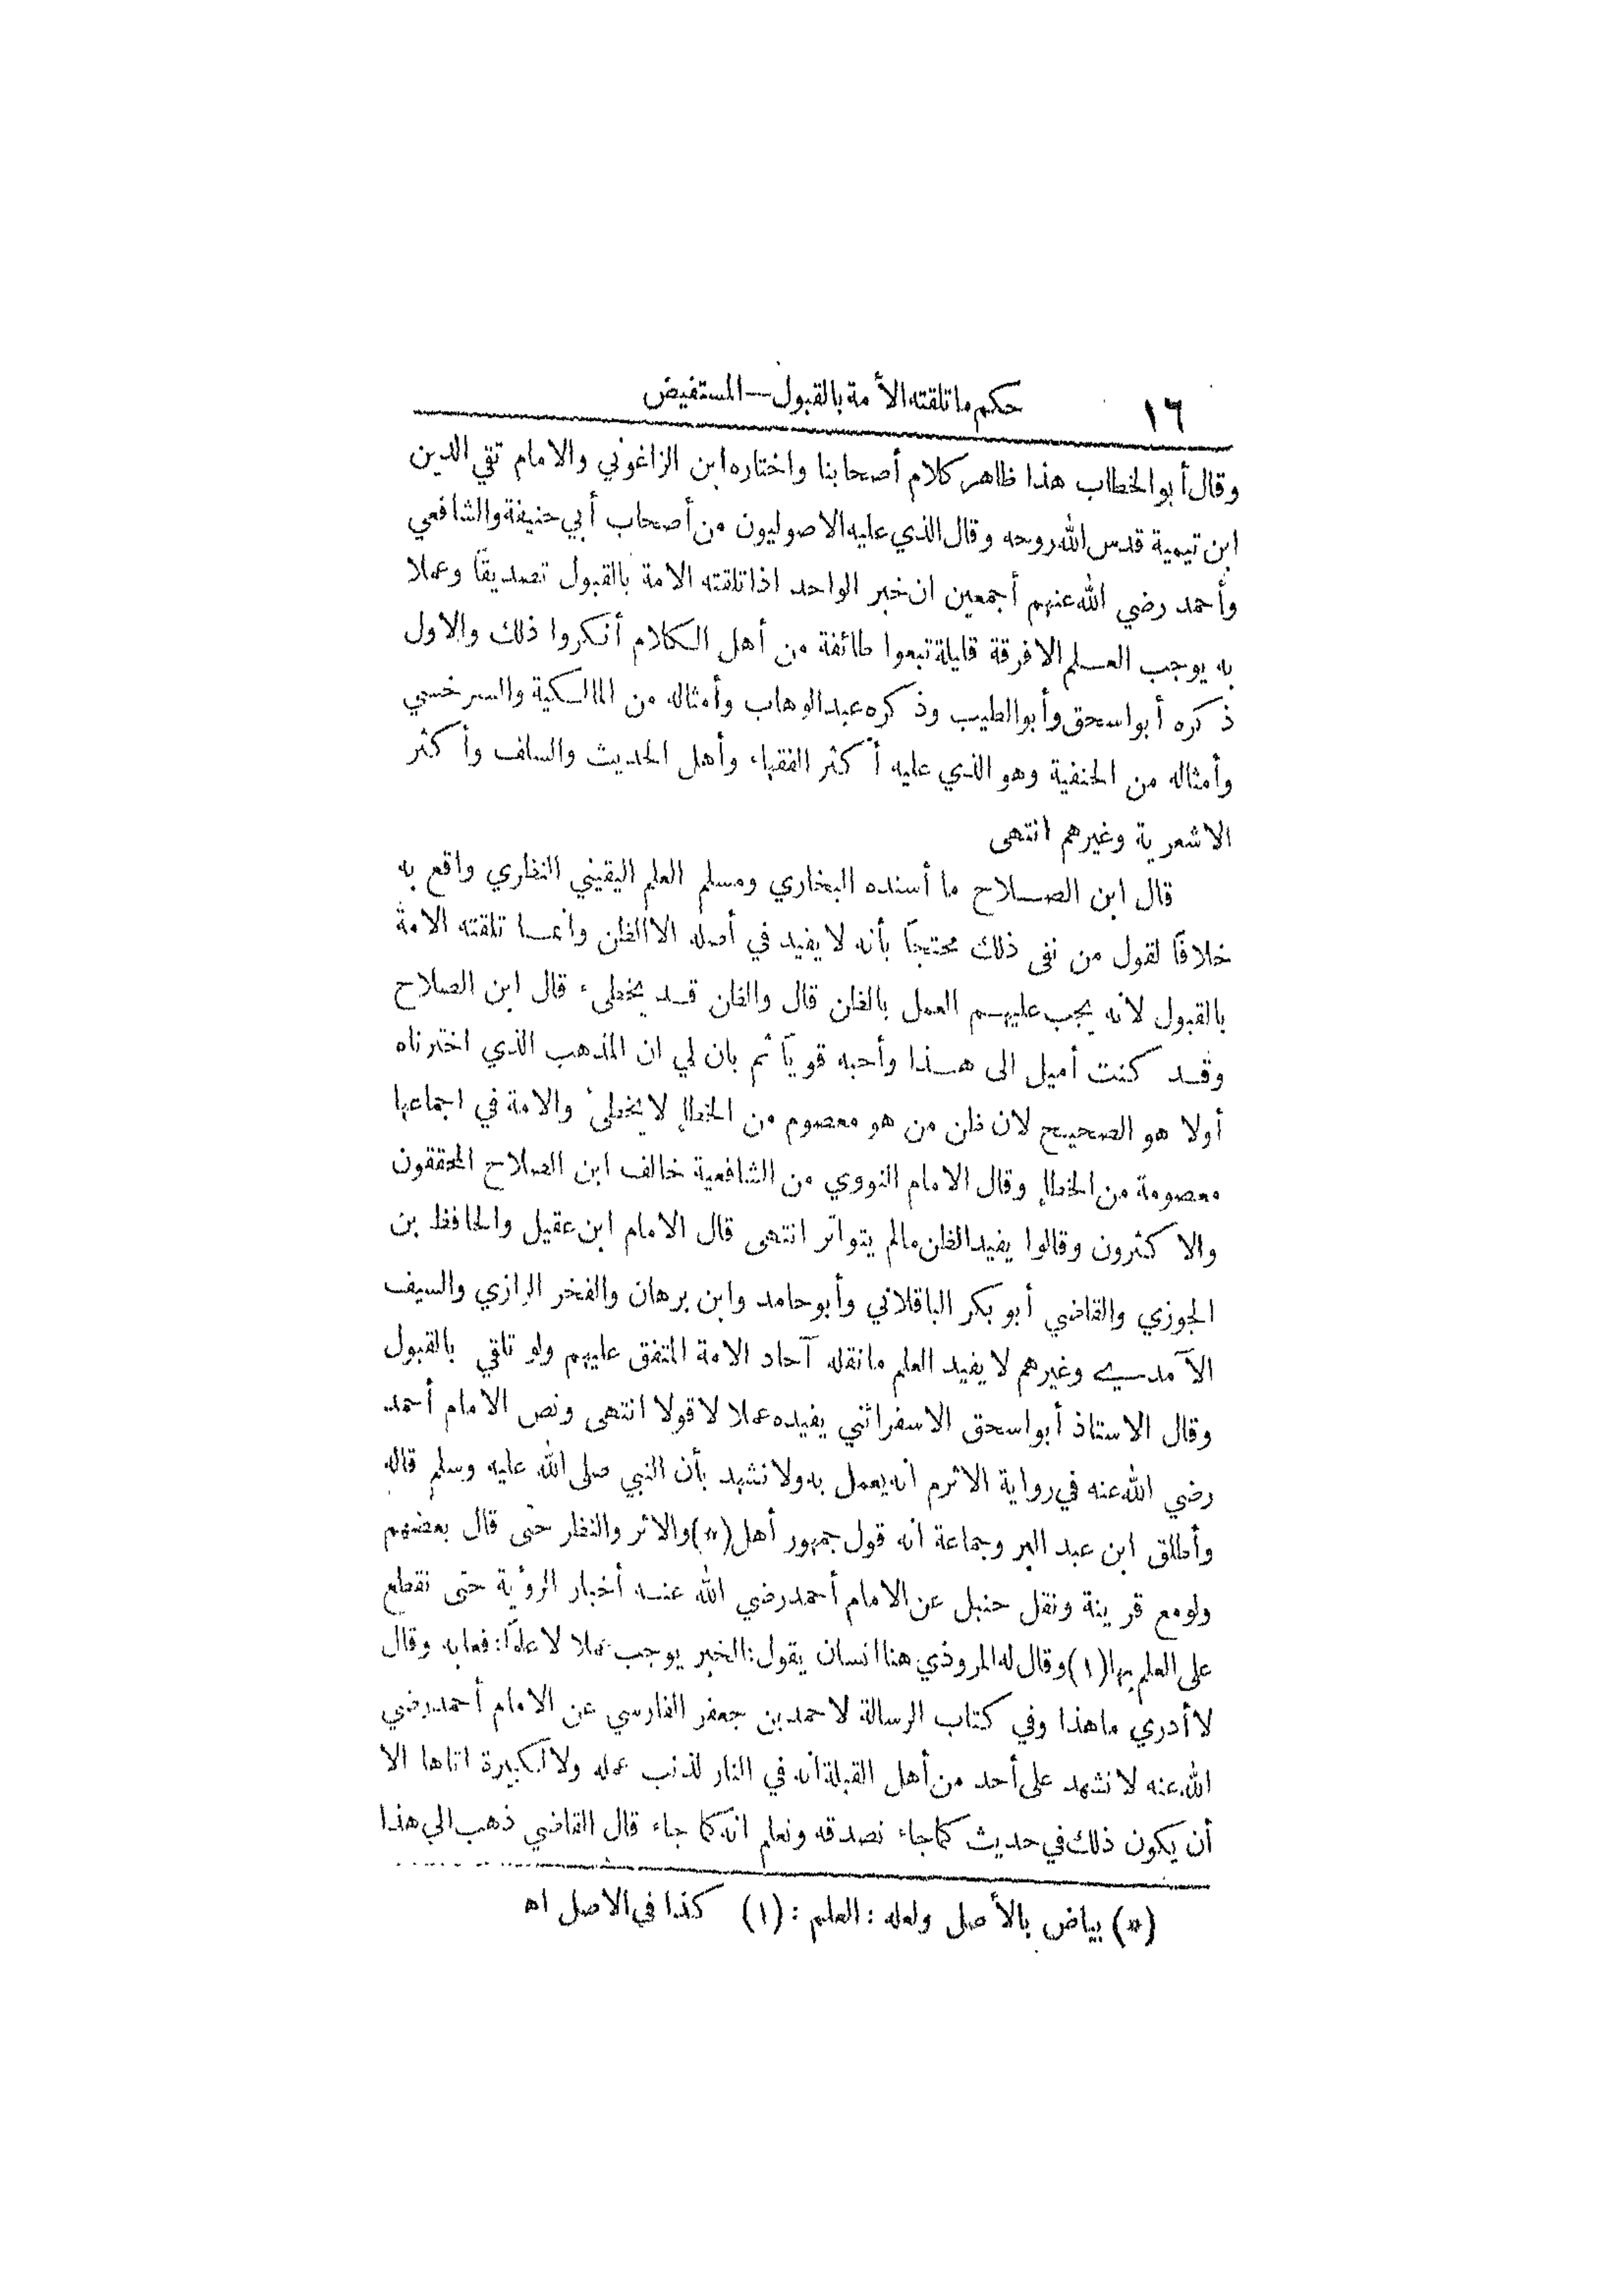 ١٦ حكم ما تلقته الأمة بالقبول — المستفيض
وقال أبو الخطاب هذا ظاهر كلام أصحابنا واختاره ابن الزاغوني والامام تقي الدين
ابن تيمية قدس الله روحه وقال الذي عليه الاصوليون من أصحاب أبي حنيفة والشافعي
وأحمد رضي الله عنهم أجمعين ان خبر الواحد اذا تلقته الامة بالقبول تصديقاً وعملا
به يوجب العلم الا فرقة قليلة تبعوا طائفة من أهل الكلام أنكروا ذلك والاول
ذكره أبو اسحق وأبو الطيب وذكره عبد الوهاب وأمثاله من المالكية والسرخسي
وأمثاله من الحنفية وهو الذي عليه أكثر الفقهاء وأهل الحديث والسلف وأكثر
الاشعرية وغيرهم انتهى
قال ابن الصلاح ما أسنده البخاري ومسلم العلم اليقيني النظري واقع به
خلافاً لقول من نفى ذلك محتجاً بأنه لا يفيد في أصله الا الظن وانما تلقته الامة
بالقبول لانه يجب عليهم العمل بالظن قال والظن قد يخطىء قال ابن الصلاح
وقد كنت أميل الى هذا وأحبه قوياً ثم بان لي ان المذهب الذي اخترناه
أولا هو الصحيح لان ظن من هو معصوم من الخطإ لا يخطىء والامة في اجماعها
معصومة من الخطإ وقال الامام النووي من الشافعية خالف ابن الصلاح المحققون
والاكثرون وقالوا يفيد الظن مالم يتواتر انتهى قال الامام ابن عقيل والحافظ بن
الجوزي والقاضي أبو بكر الباقلاني وأبو حامد وابن برهان والفخر الرازي والسيف
الآمدي وغيرهم لا يفيد العلم ما نقله آحاد الامة المتفق عليهم ولو تلقي بالقبول
وقال الاستاذ أبو اسحق الاسفرائني يفيده عملا لا قولا انتهى ونص الامام أحمد
رضي الله عنه في رواية الاثرم انه يعمل به ولا نشهد بأن النبي صلى الله عليه وسلم قاله
وأطلق ابن عبد البر وجماعة انه قول جمهور أهل (*) والاثر والنظر حتى قال بعضهم
ولو مع قرينة ونقل حنبل عن الامام أحمد رضي الله عنه أخبار الرؤية حتى نقطع
على العلم بها (١) وقال له المروذي هنا انسان يقول: الخبر يوجب عملا لا علماً: فعابه وقال
لا أدري ما هذا وفي كتاب الرسالة لاحمد بن جعفر الفارسي عن الامام أحمد رضي
الله عنه لا نشهد على أحد من أهل القبلة انه في النار لذنب عمله ولا لكبيرة اتاها الا
أن يكون ذلك في حديث كما جاء نصدقه ونعلم انه كما جاء قال القاضي ذهب الى هذا
(*) بياض بالأصل ولعله : العلم : (١) كذا في الاصل اه